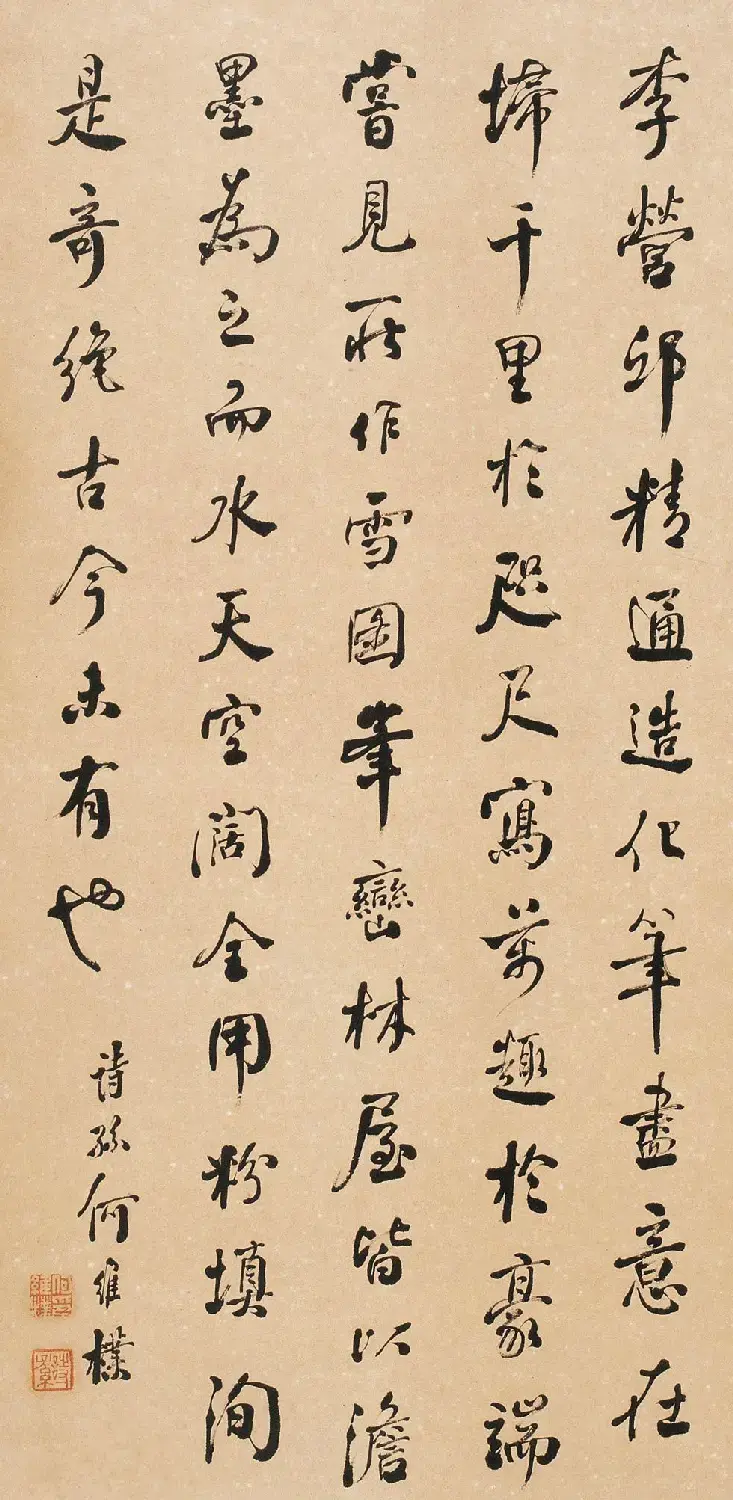 李營邱精通造化筆盡意在
埽千里於咫尺寫萬趣於豪端
嘗見所作雪圖峯巒林屋皆以澹
墨為之而水天空闊全用粉填洵
是奇絶古今未有也
詩孫何維樸